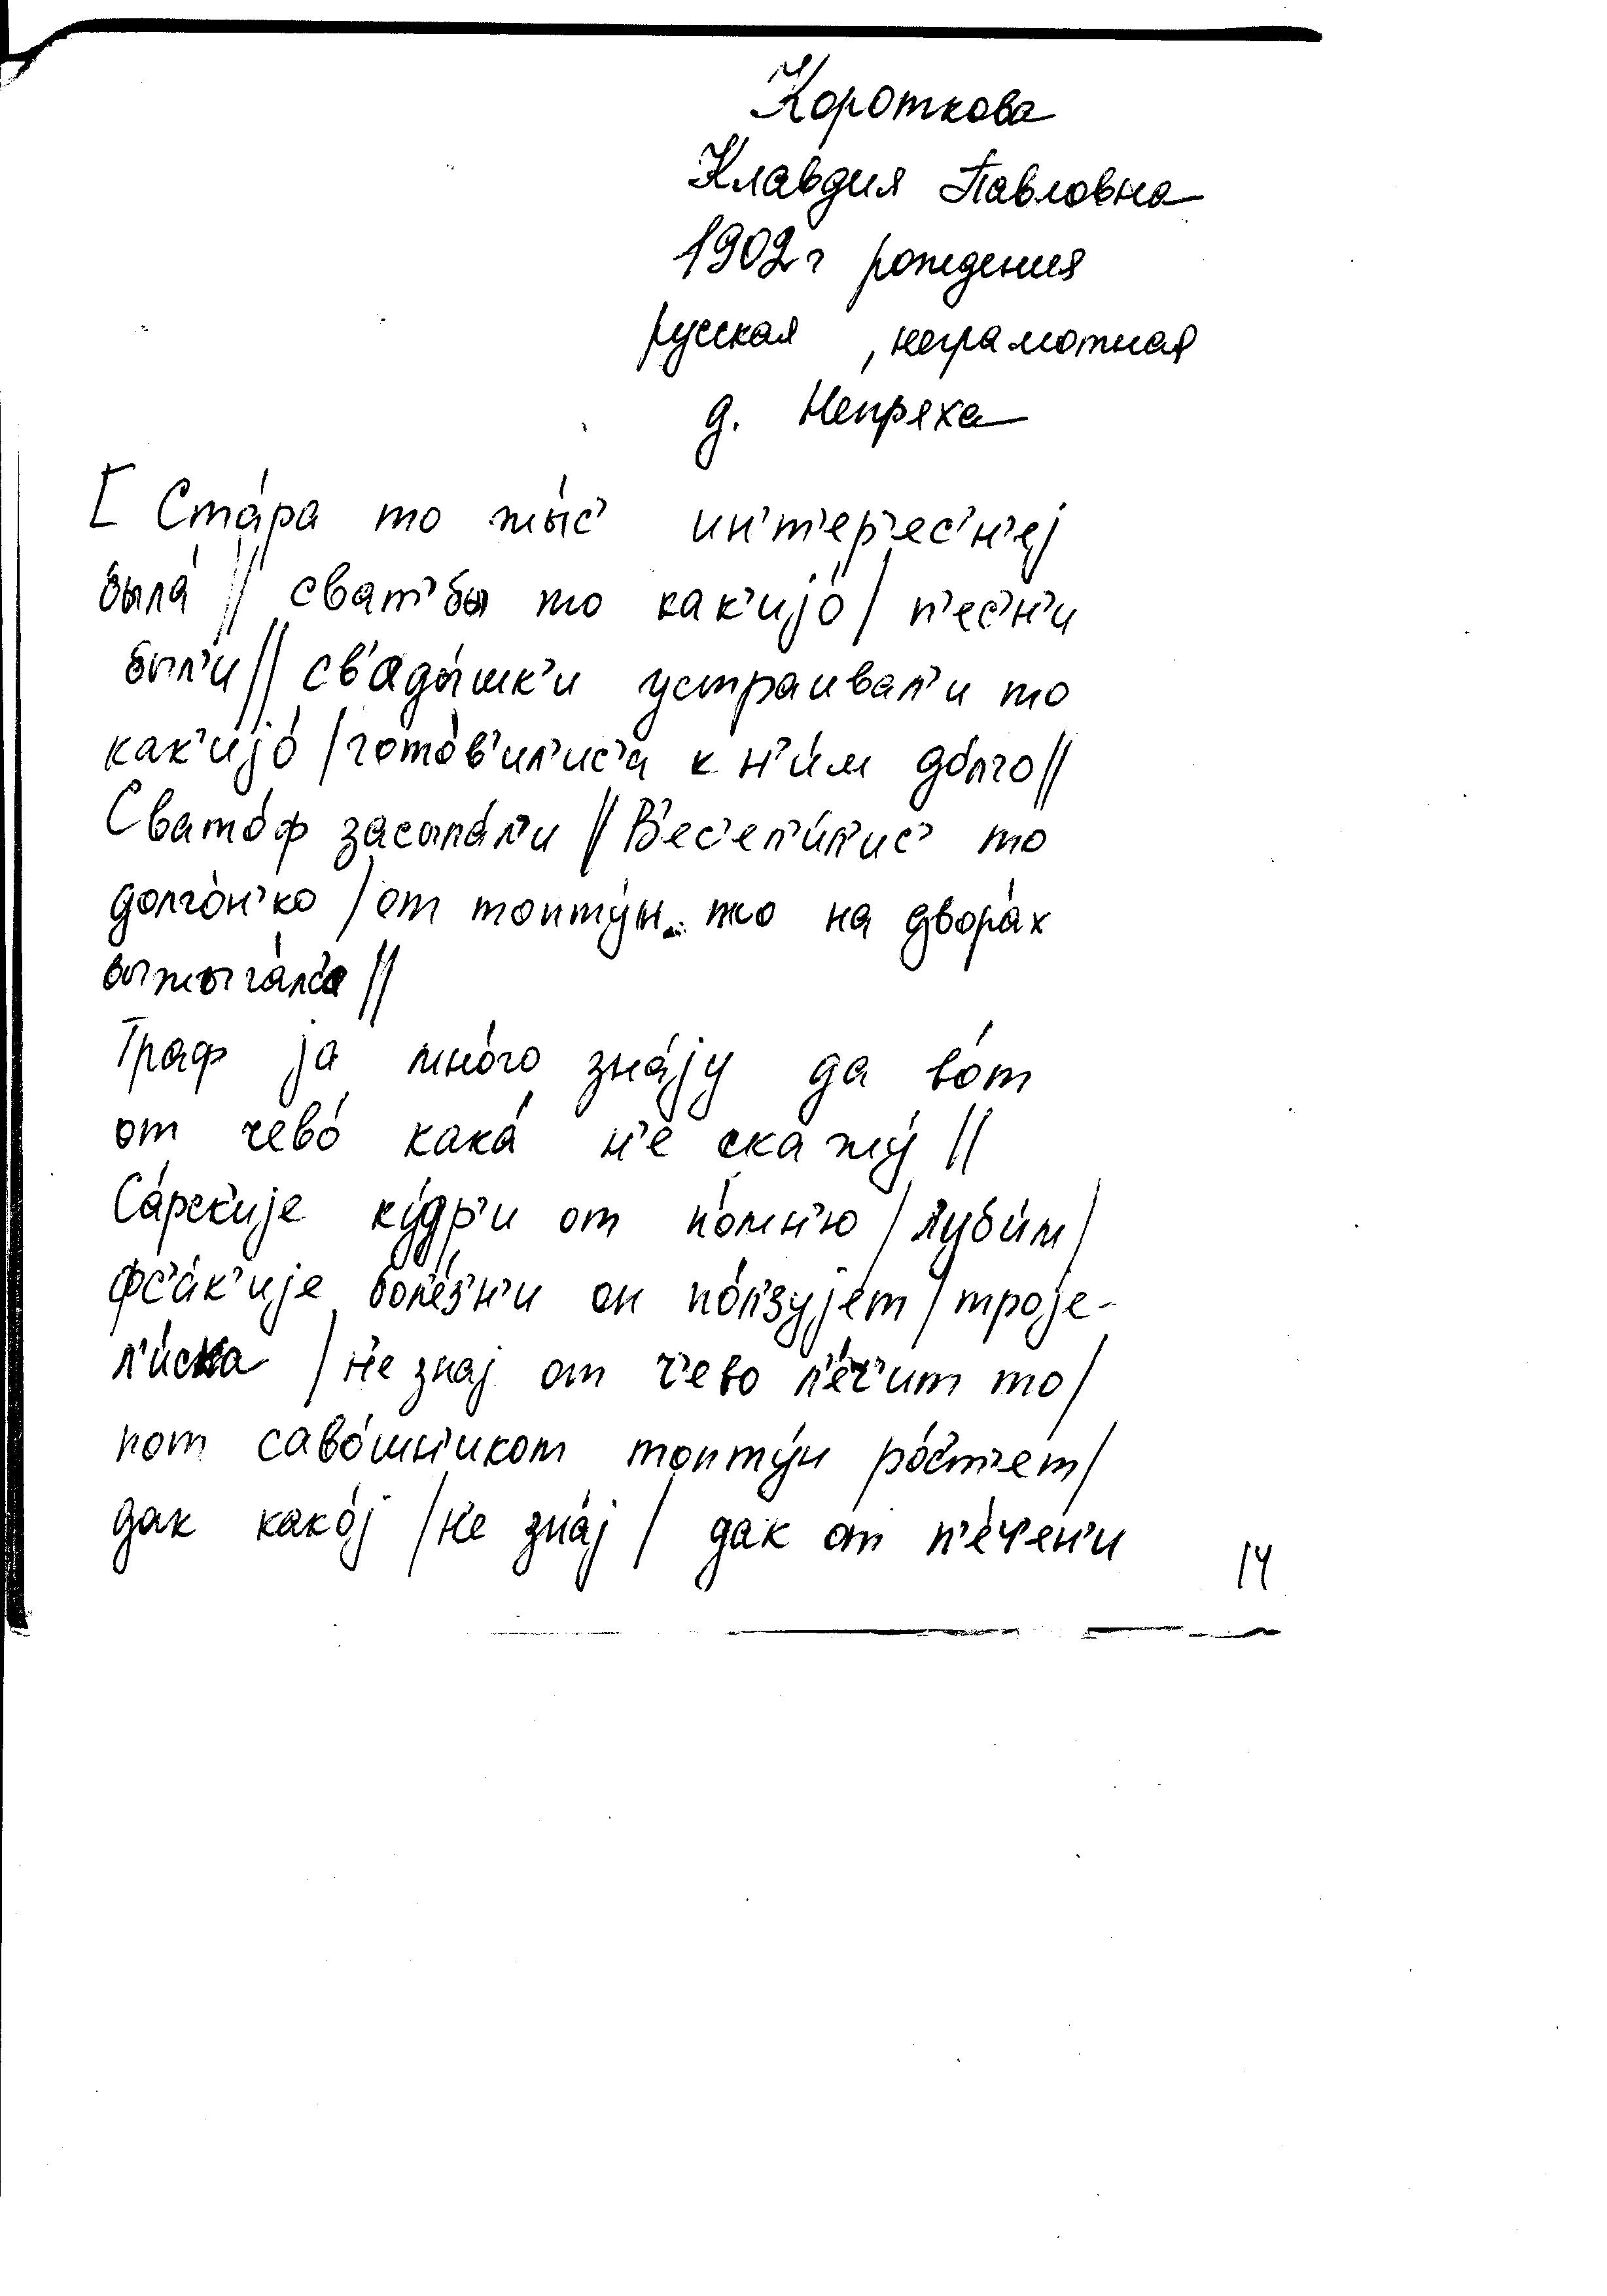 Короткова
Клавдия Павловна
1902 г рождения
русская , неграмотная
д. Непряха
[ Ста́ра то жы́с' ин'т'ер'е́с'н'еј
была́ // сват'бы то как'ијо́ / п'ес'н'и
был'и // св'ады́шк'и устраивал'и то
как'ијо́ / гото́в'ил'ис'а к н'и́м до́лго //
Свато́ф засыпа́л'и // В'ес'ел'и́л'ис' то
долго́н'ко / от топту́н то на двора́х
выжыга́лс'а //
Траф ја мно́го зна́ју да во́т
от чево́ кака́ н'е скажу́ //
Са́рск'ије ку́др'и от по́мн'ю / л'уби́м /
фс'а́к'ије бол'е́з'н'и он по́л'зујет / троје-
л'и́ска / н'е знај от ч'ево л'е́ч'ит то /
пот саво́шн'иком топту́н ро́ст'ет /
дак како́ј / н'е зна́ј / дак от п'е́ч'ен'и
14